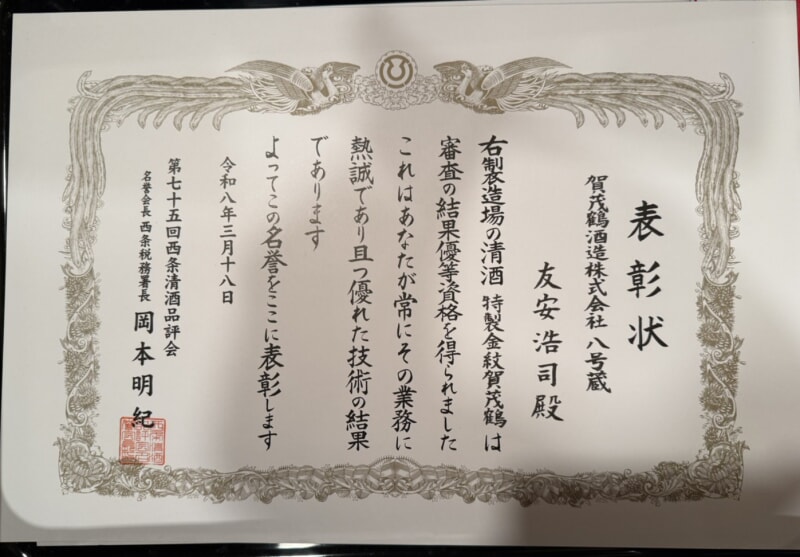 表彰状
賀茂鶴酒造株式会社 八号蔵
友安浩司殿
右製造場の清酒 特製金紋賀茂鶴は
審査の結果優等資格を得られました
これはあなたが常にその業務に
熱誠であり且つ優れた技術の結果
であります
よってこの名誉をここに表彰します
令和八年三月十八日
第七十五回西条清酒品評会
名誉会長 西条税務署長 岡本明紀